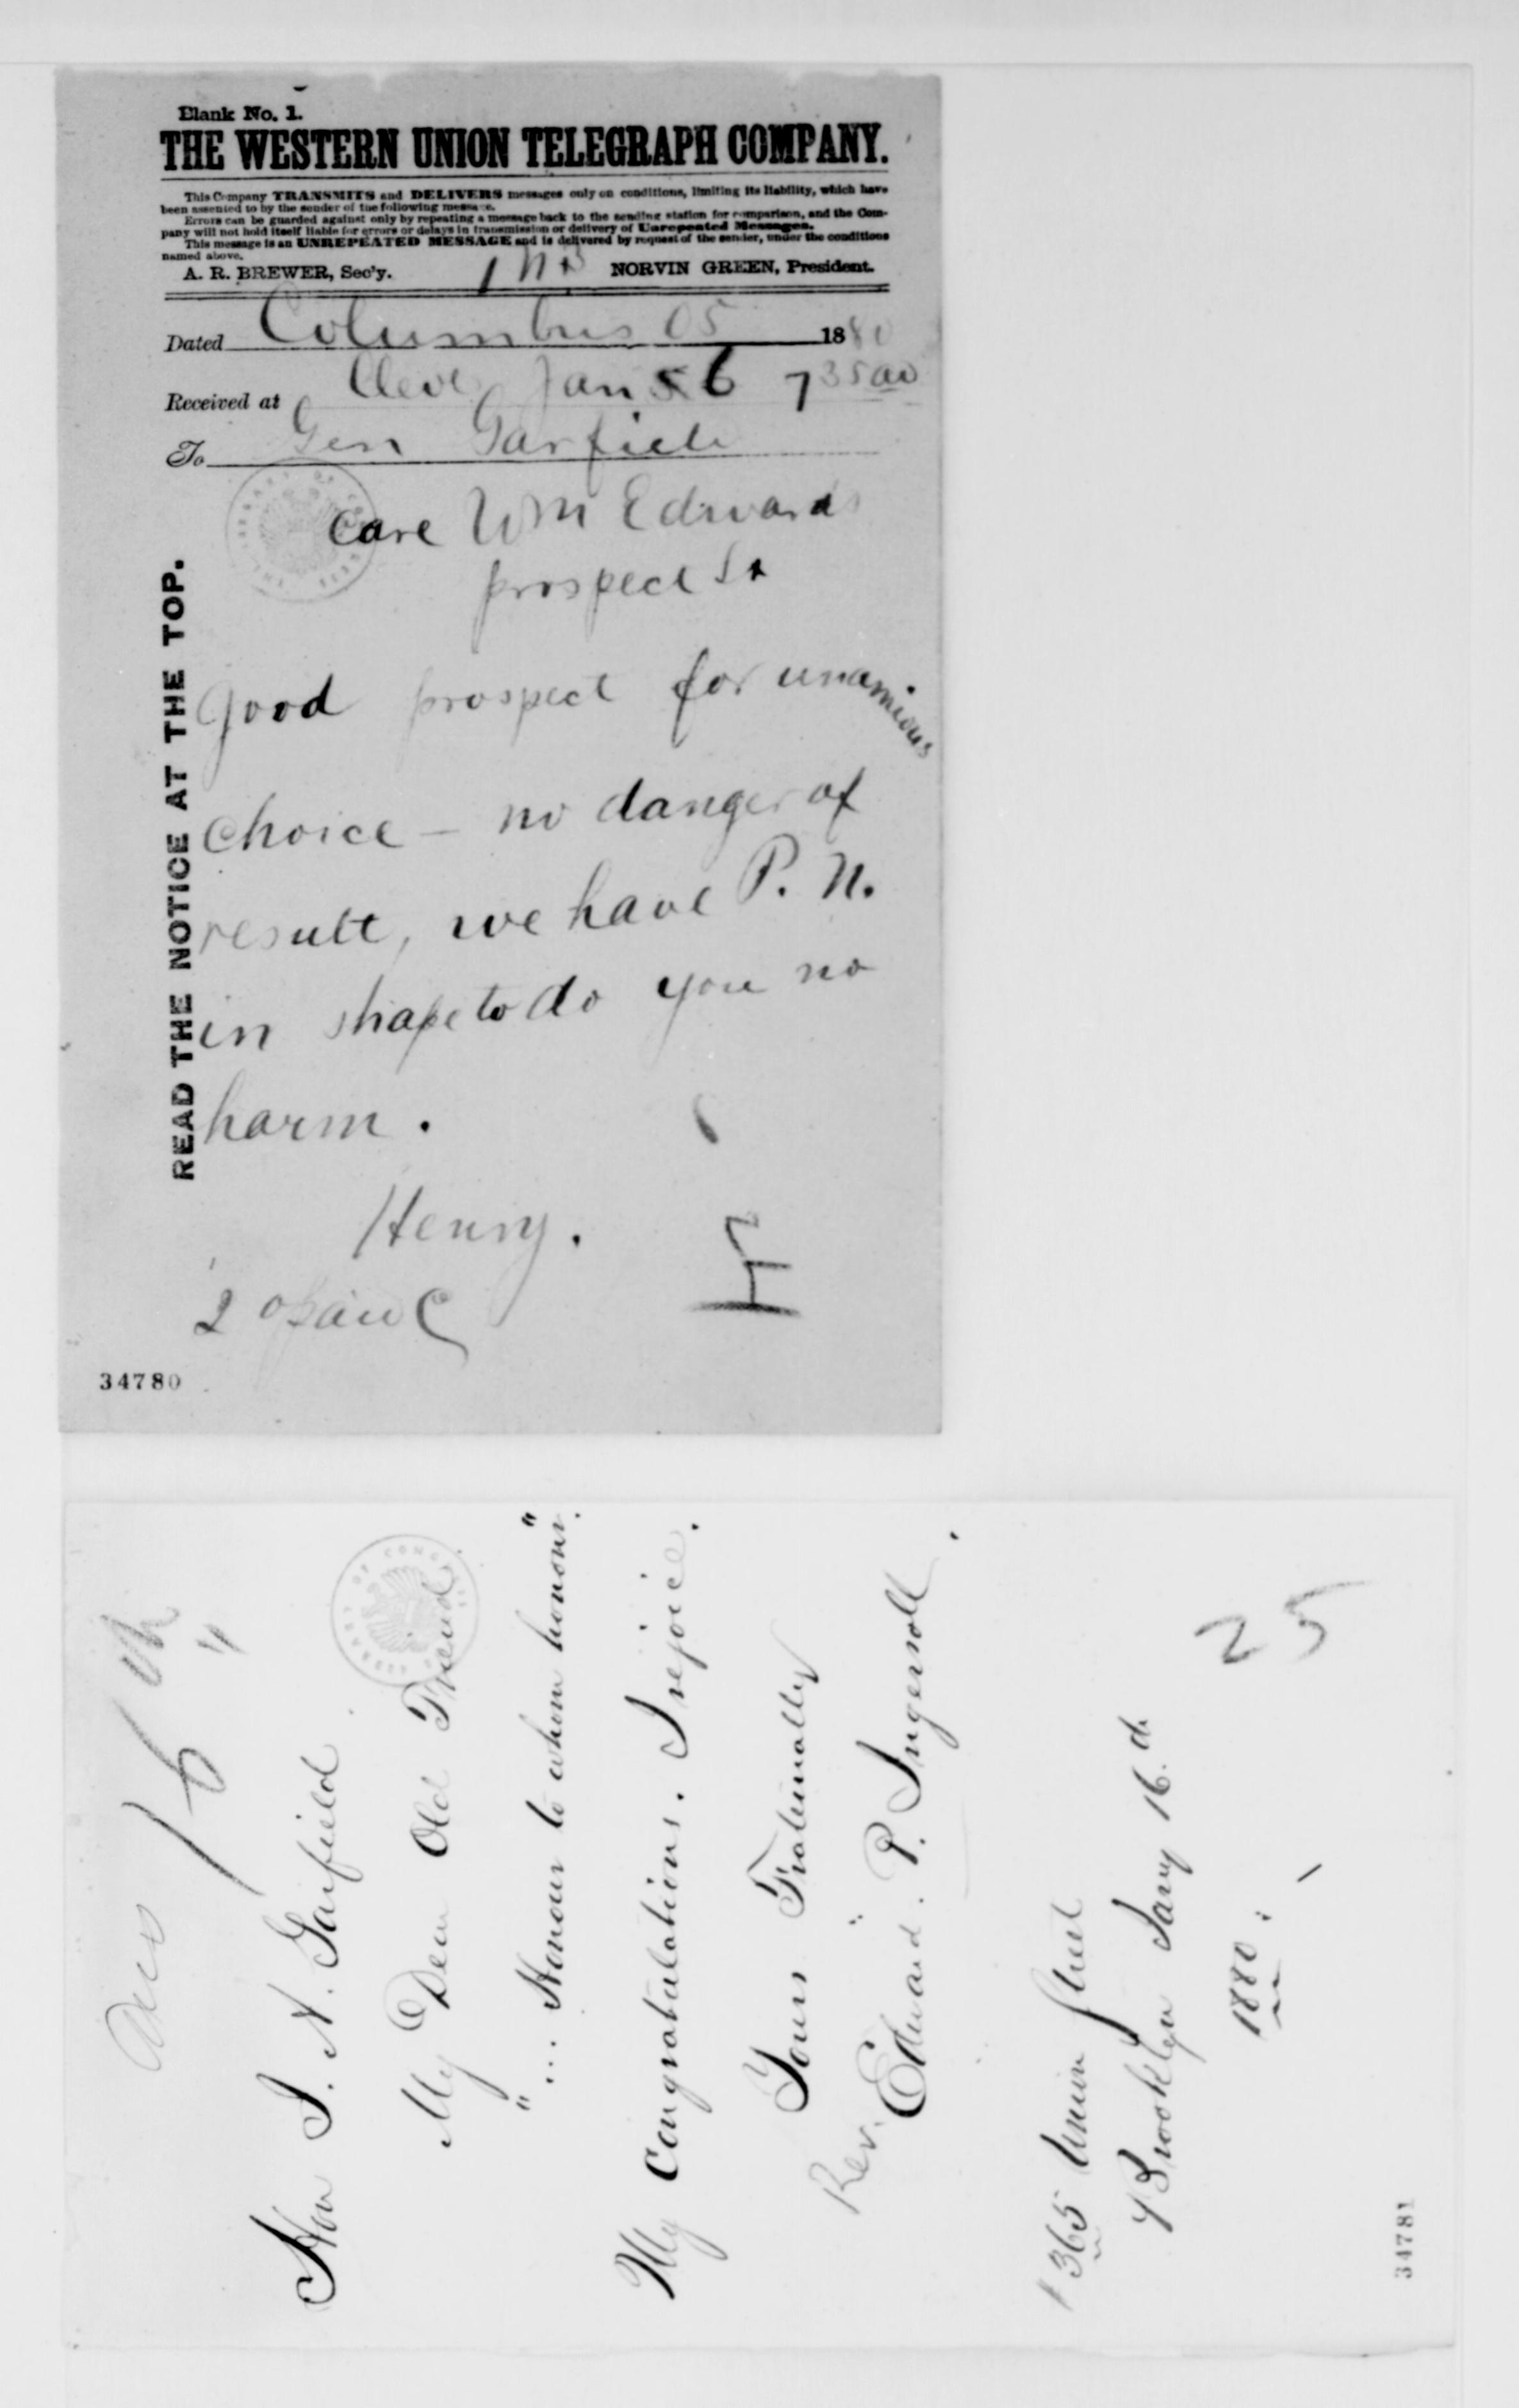 Blank No. 1.
THE WESTERN UNION TELEGRAPH COMPANY.
This Company TRANSMITS and DELIVERS messages only on conditions, limiting its liability, which have
been assented to by the sender of the following message.
Errors can be guarded against only by repeating a message back to the sending station for comparison, and the Com-
pany will not hold itself liable for errors or delays in transmission or delivery of Unrepeated Messages.
This message is an UNREPEATED MESSAGE and is delivered by request of the sender, under the conditions
named above.
A. R. BREWER, Sec'y. NORVIN GREEN, President.
Dated Columbus O5 1880
Received at Cleve Jan 6 7 35 a
To Gen Garfield
Care Wm Edwards
prospect St
READ THE NOTICE AT THE TOP.
Good prospect for unamious
Choice – no danger of
result, we have P. N.
in shape to do you no
harm.
Henry.
34780
16
Hon J. A. Garfield
My Dear Old Friend
"... Honour to whom honour".
My Congratulations. I rejoice.
Yours Fraternally
Rev. Edward. P. Ingersoll.
365 Union Street
Brooklyn Jany 16.
1880.
25
34781